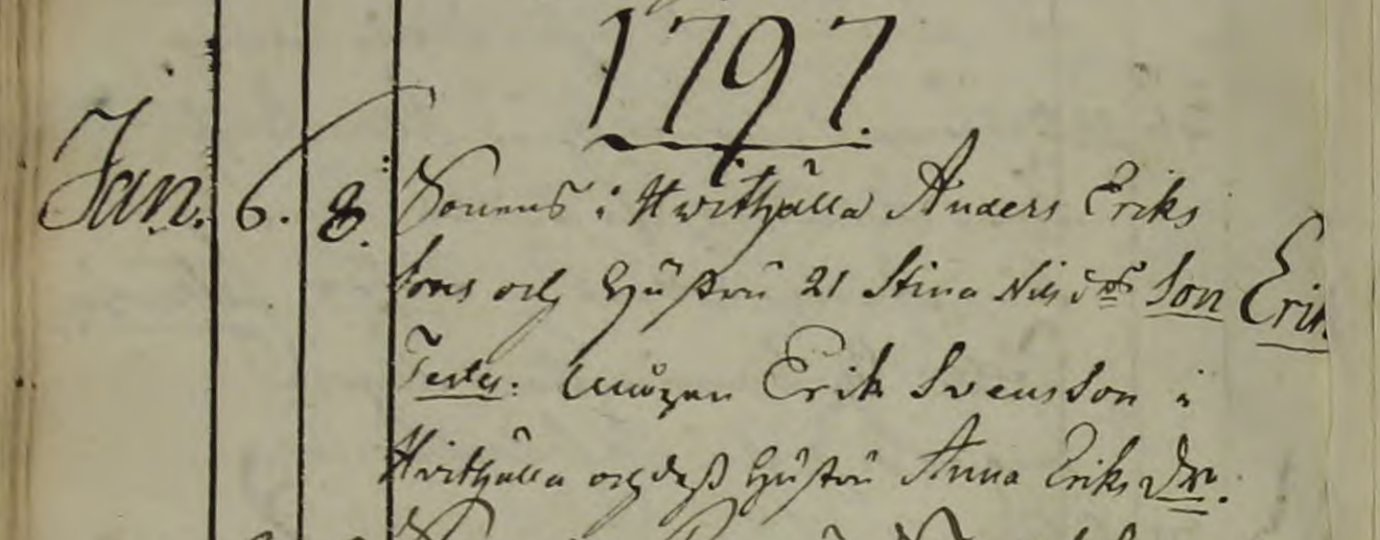 1797.
Jan. 6. 8. Bonens i Hwithjälla Anders Eriks
Sons och Hustru 21 Stina Nilsdrs Son Erik
Testes: Erik Svensson i
Hvithjälla och dess Hustru Anna Eriks Dr.